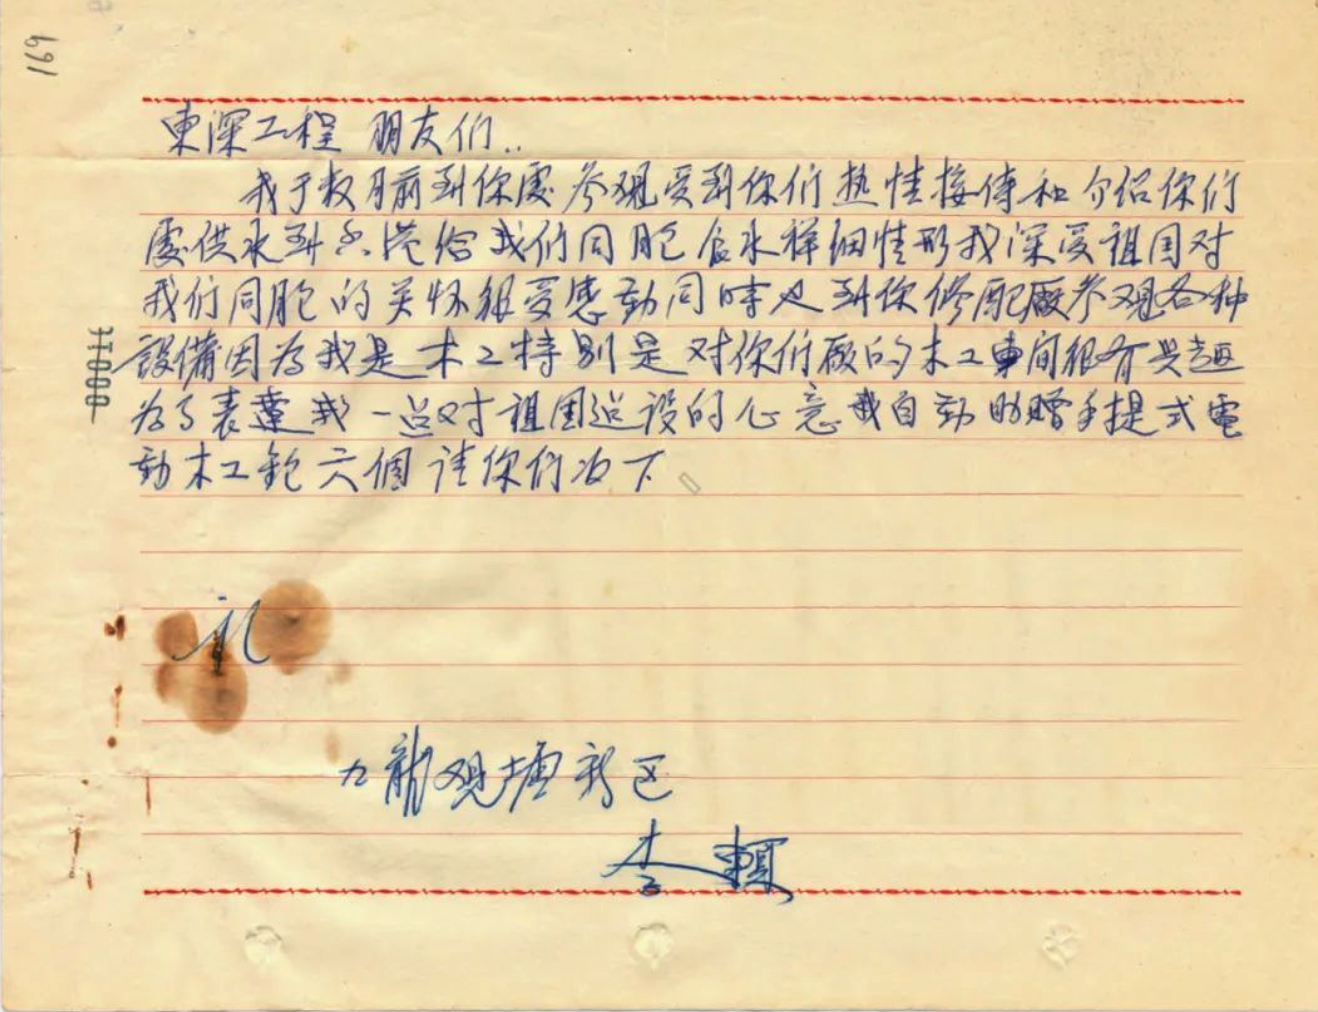 169
東深工程 朋友们..
我于数月前到你處参观受到你们热情接待和介绍你们
處供水到香港给我们同胞食水祥细情形我深受祖国对
我们同胞的关怀很受感動同時也到你修配廠参观各种
設備因为我是木工特别是对你们廠的木工車间很有兴趣
为了表薘我一点对祖国建設的心意我自动助赠手提式電
動木工鉋六個请你们收下
00011
礼
九龍观塘新区
李賴